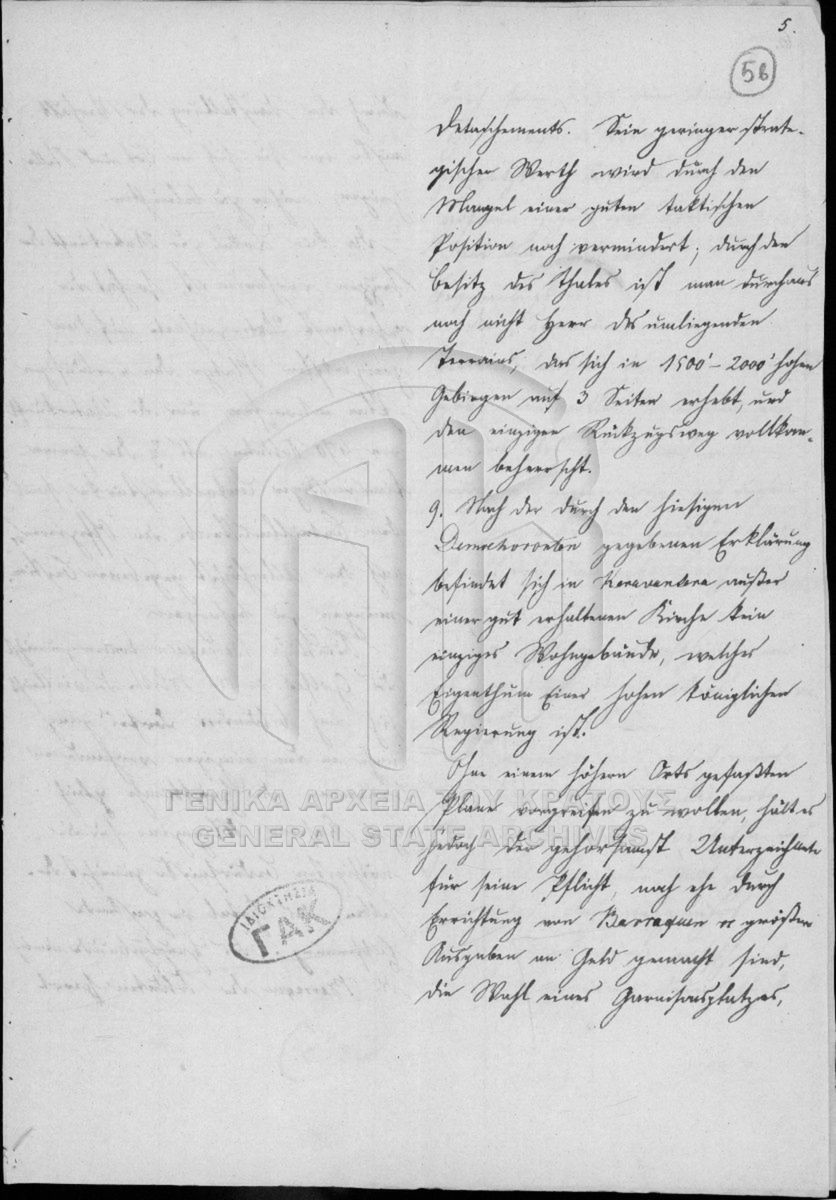 5.
56
Detaschements. Sein geringer strate-
gischer Werth wird durch den
Mangel einer guten taktischen
Position noch vermindert; durch den
Besitz des Thales ist man durchaus
noch nicht Herr des umliegenden
Terrains, das sich in 1500'-2000' hohen
Gebirgen auf 3 Seiten erhebt, und
den einzigen Rückzugsweg vollkom-
men beherrscht.
9. Nach der durch den hiesigen
gegebenen Erklärung
befindet sich in außer
einer gut erhaltenen Kirche kein
einziges Wohngebäude, welches
Eigenthum Einer hohen königlichen
Regierung ist.
Ohne einem höhern Orts gefaßten
Plane vorgreifen zu wollen, hält es
jedoch der gehorsamst Unterzeichnete
für seine Pflicht, noch ehe durch
Errichtung von Barraquen größere
Ausgaben an Geld gemacht sind,
die Wahl eines Garnisonsplatzes,
ΓΕΝΙΚΑ ΑΡΧΕΙΑ ΤΟΥ ΚΡΑΤΟΥΣ
GENERAL STATE ARCHIVES
ΙΔΙΟΚΤΗΣΙΑ
ΓΑΚ